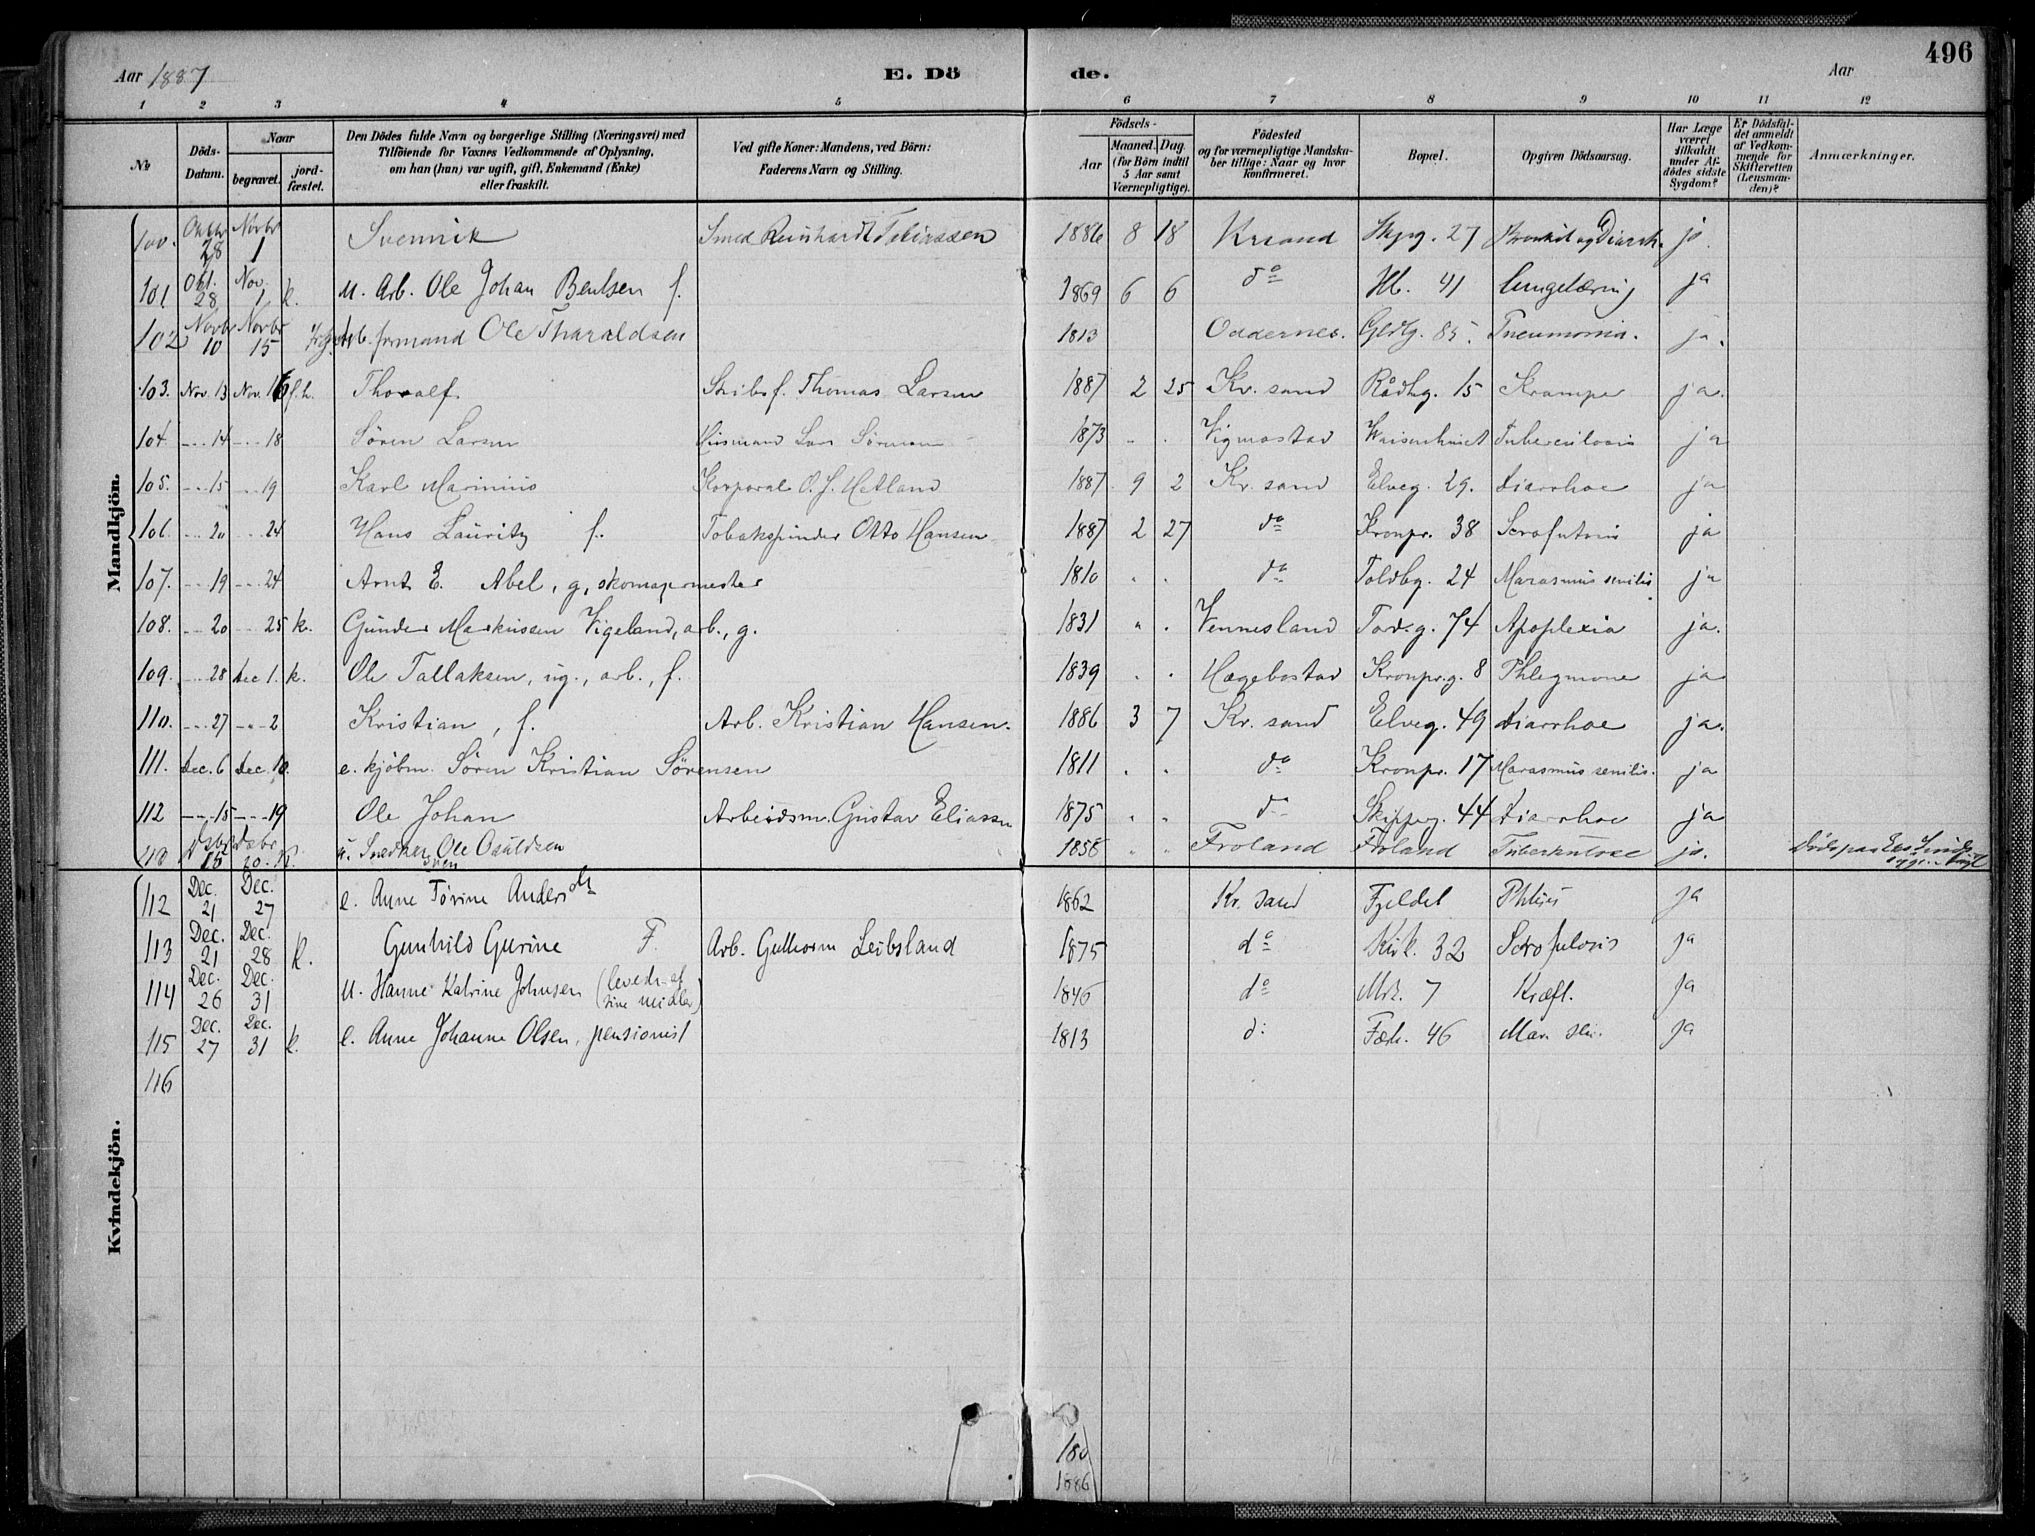 496
Aar 1887 E. Dö de. Aar
1 2 3 4 5 6 7 8 9 10 11 12
No
Döds-Datum.
Naar
begravet.
jord-fæstet.
Den Dödes fulde Navn og borgerlige Stilling (Næringsvei) med
Tilföiende for Voxnes Vedkommende af Oplysning,
om han (hun) var ugift, gift, Enkemand (Enke)
eller fraskilt.
Ved gifte Koner: Mandens, ved Börn:
Faderens Navn og Stilling.
Födsels-
Aar
Maaned. Dag.
(for Börn indtil
5 Aar samt
Værnepligtige).
Födested
og for værnepligtige Mandska-
ber tillige: Naar og hvor
konfirmeret.
Bopæl.
Opgiven Dödsaarsag.
Har Læge
været
tilkaldt
under Af-
dödes sidste
Sygdom?
Er Dödsfal-
det anmeldt
af Vedkom-
mende for
Skifteretten
(Lensman-
den)?
Anmærkninger.
Mandkjön.
100. Oktbr 28 Novbr 1 Svennik Smed Reinhardt Tobiassen 1886 8 18 Krsand Skpg. 27 Bronkit og Diarrh. ja.
101 Okt. 28 Nov. 1 k. u. Arb. Ole Johan Bentsen f. 1869 6 6 do Hb. 41 Lungetæring ja
102 Novbr 10 Novbr 15 Arb. formand Ole Tharaldsen 1813 Oddernes. Gldg. 85. Pneumonia. ja.
103. Nov. 13 Nov. 16 f.h. Thoralf Skibsf. Thomas Larsen 1887 2 25 Kr.sand Rådhg. 15 Krampe ja.
104 --- 14 --- 18 Sören Larsen Husmand Lars 1873 - . Vigmostad Waisenhuset Tuberculosis ja
105. --- 15 --- 19 Karl Marinius Korporal O. J. Hetland 1887 9 2 Kr. sand Elveg. 29. Diarrhoe ja
106. --- 20 --- 24 Hans Lauritz f. Tobakspinder Otto Hansen 1887 2 27 do Kronpr. 38 ja
107. --- 19 --- 24 Arnt E. Abel, g, skomagermester 1810 " . do Toldbg. 24 Marasmus senilis ja
108. --- 20 --- 25 k. Gunder Markussen Vigeland, arb., g. 1831 " . Vennesland Tord.g. 74 Apoplexia ja.
109. --- 28 Dec 1. k. Ole Tallaksen, ug., arb., f. 1839 . . Hægebostad Kronpr.g. 8 Phlegmone ja
110. --- 27 --- 2 Kristian, f. Arb. Kristian Hansen. 1886 3 7 Kr. sand Elveg. 49 Diarrhoe ja.
111. Dec. 6 Dec. 10. e. kjöbm. Sören Kristian Sörensen 1811 . . do Kronpr. 17 Marasmus senilis. ja
112 --- 15 --- 19 Ole Johan Arbeidsm. Gustav Eliassen 1875 " . do Skipperg. 44 Diarrhoe ja
113 Dsbr 15 Dsbr 20. k. u. Snedker Ole Osuldsen 1858 " " Froland Froland Tuberkulose ja. Döds paa
Kvindekjön.
112 Dec. 21 Dec. 27 e. Anne Tørine Andersen 1862 Kr. sand Fjeldet Phtisis ja
113 Dec. 21 Dec. 28 k. Gunhild Gurine F. Arb. Guthorm Leibsland 1875 do Kirk. 32 Scrofulosis ja
114 Dec. 26 Dec. 31 u. Hanne Katrine Johnsen (levede af sine midler) 1846 do Mrk. 7 Kræft. ja
115 Dec. 27 Dec. 31 k. e. Anne Johanne Olsen, pensionist 1813 d: Fæst. 46 Mar. sen. ja
116
180
1886